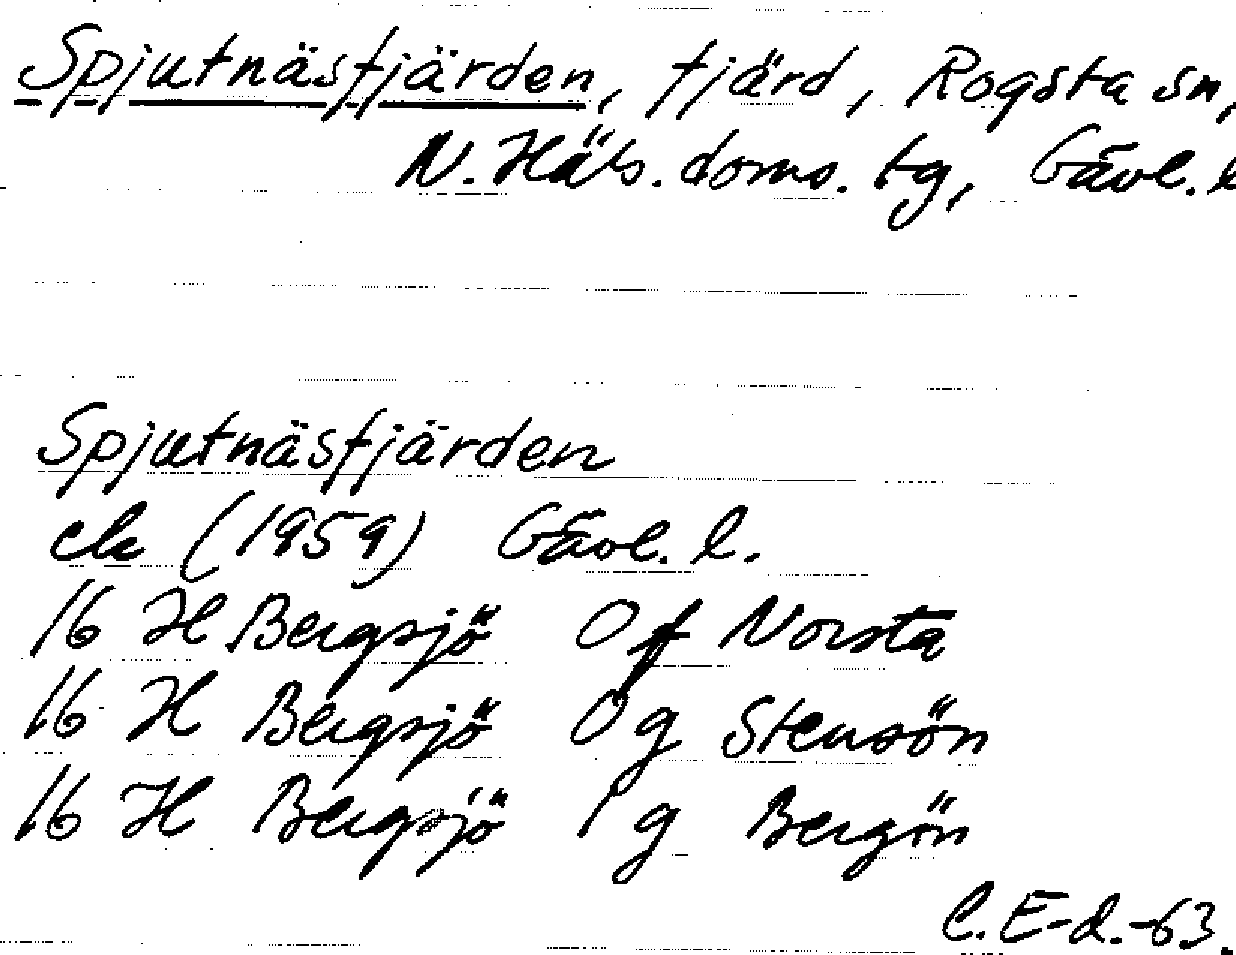 Spjutnäsfjärden, fjärd, Rogsta sn,
N. Häls. doms. tg, Gävl. l
Spjutnäsfjärden
ek (1959) Gävl. l.
16 H Bergsjö 0 f Norsta
16 H Bergsjö 0 g Stensön
16 H Bergsjö 1 g Bergön
C. E-d.-63.